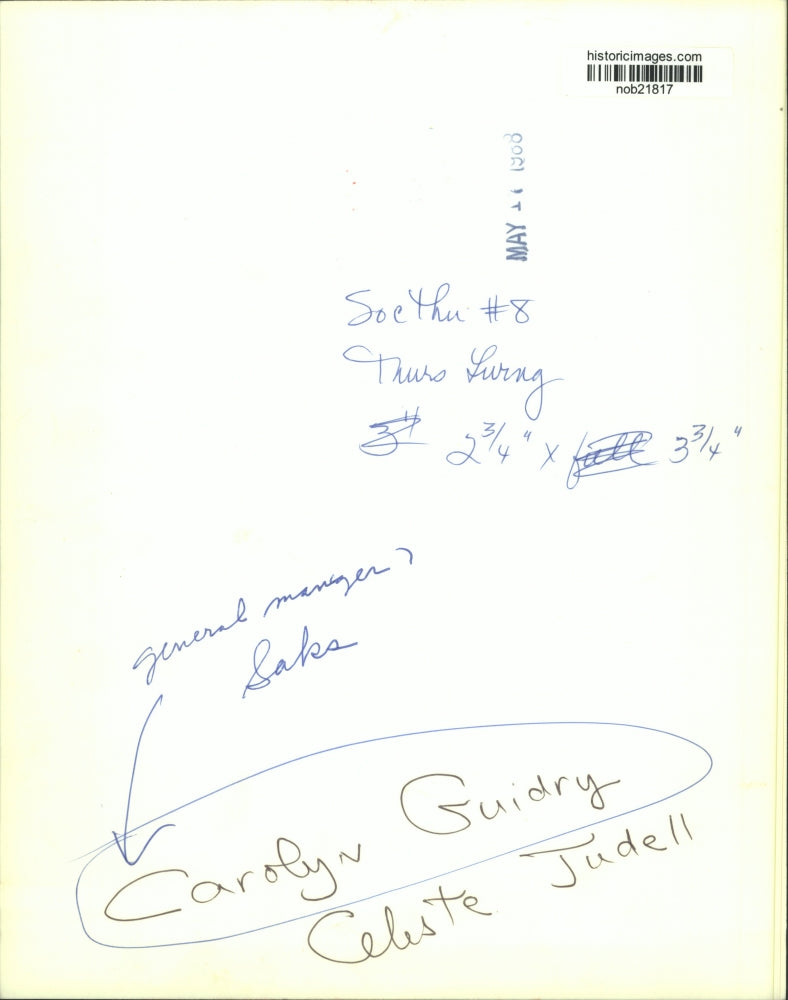 historicimages.com
nob21817
MAY 1988
Soc Thu #8
Thurs Living
3" 2 3/4" x full 3 3/4"
general manager?
Saks
Carolyn Guidry
Celeste Judell